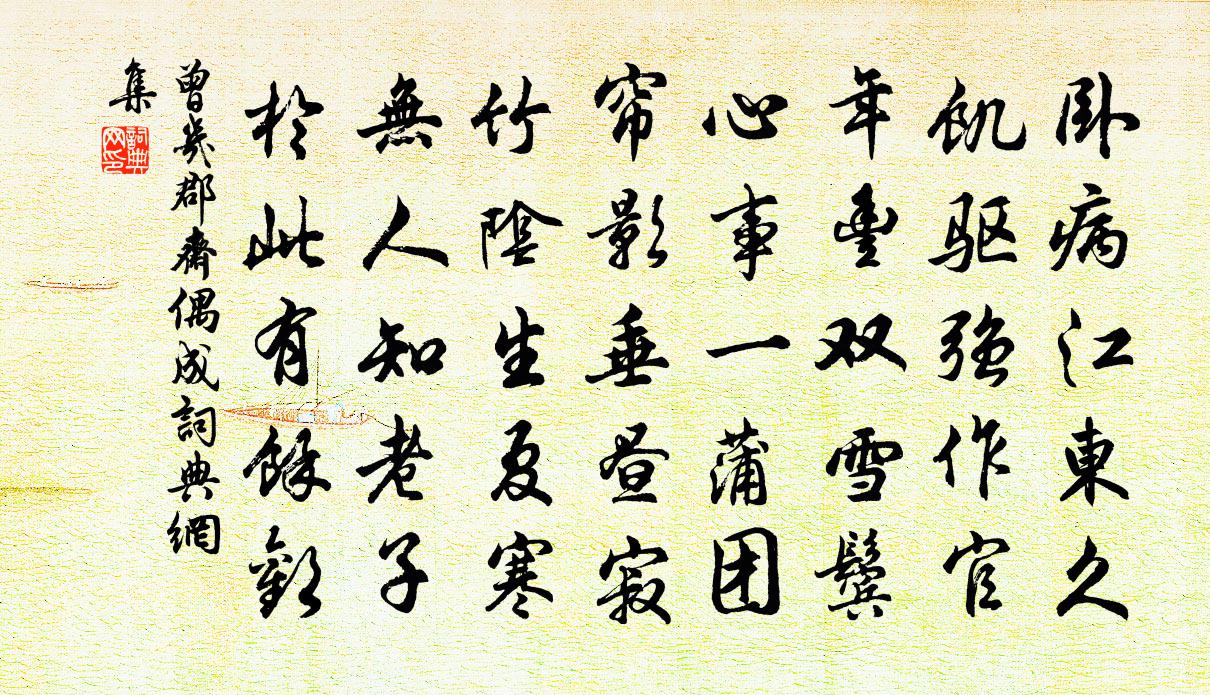 卧病江東久
飢驱强作官
年豊双雪鬓
心事一蒲团
帘影垂昼寂
竹陰生夏寒
無人知老子
於此有餘歡
曾幾郡齋偶成詞典網
集
詞典
网印